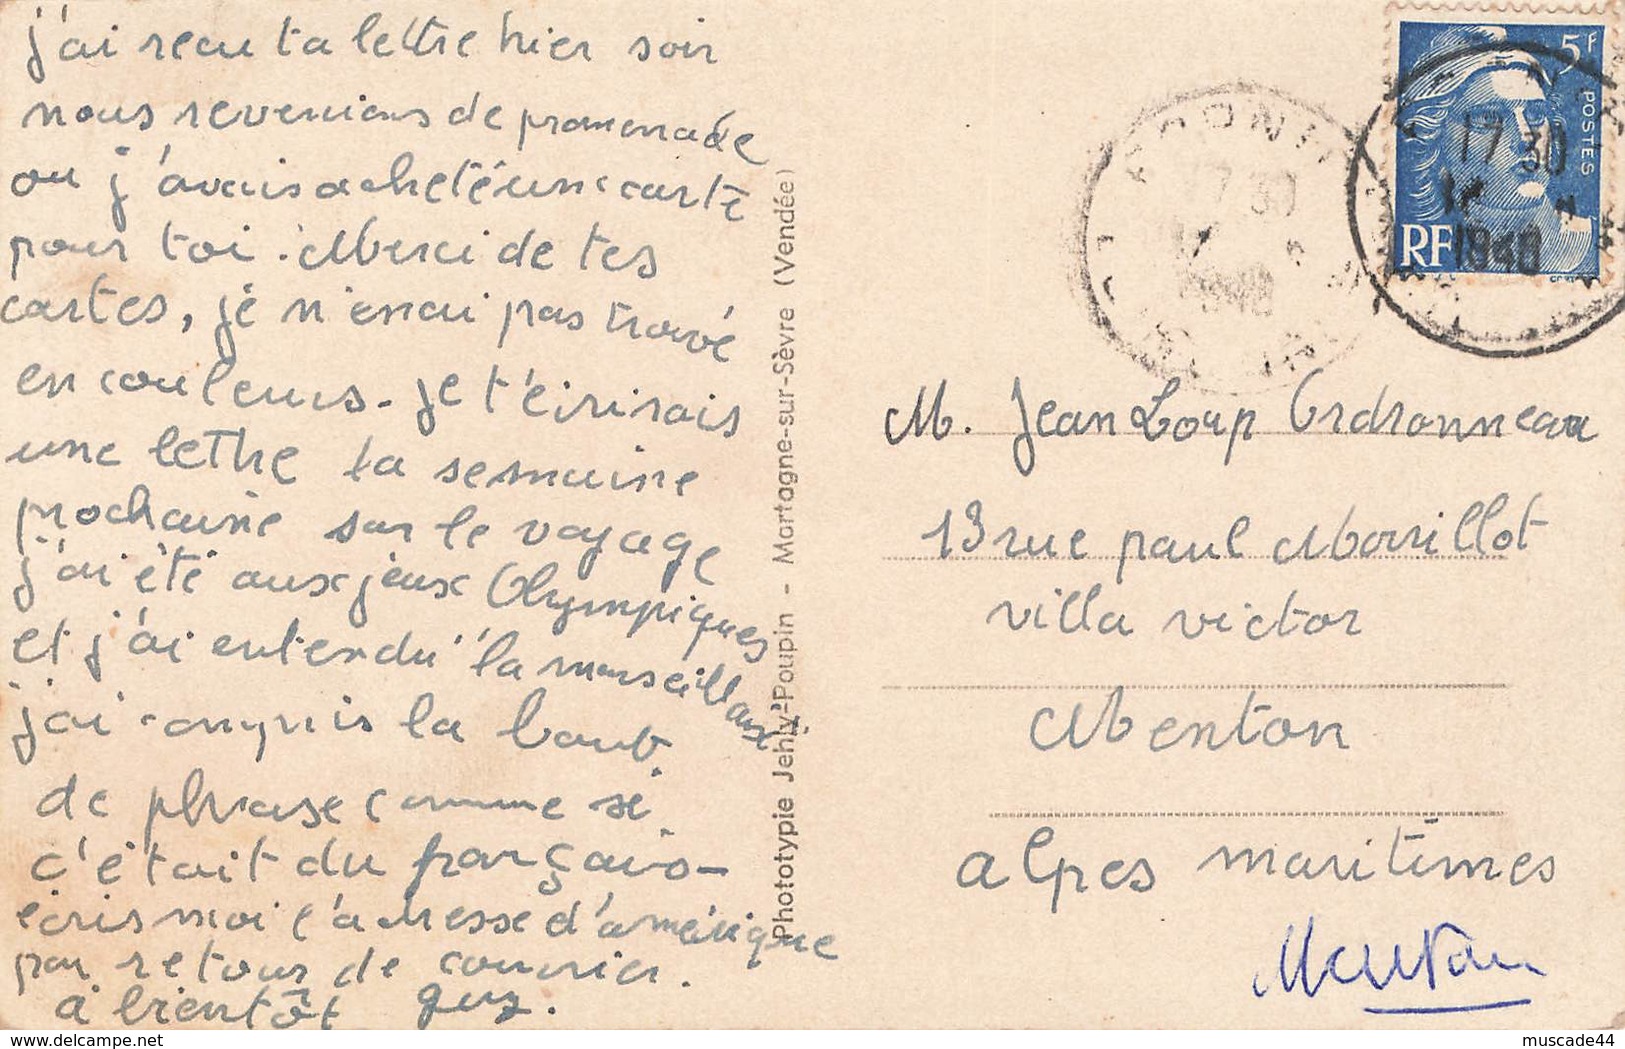 j'ai recu ta lettre hier soir
nous revenions de promenade
ou j'avais acheté une carte
pour toi. Merci de tes
cartes, je n'en ai pas trouvé
en couleurs. je t'écrirais
une lettre la semaine
prochaine sur le voyage
j'ai été aux jeux Olympiques
et j'ai entendu la marseillaise
j'ai compris la bout
de phrase comme si
c'était du français-
écris moi l'adresse d'amérique
par retour de courrier.
à bientôt guy.
Phototypie Jehly-Poupin - Mortagne-sur-Sèvre (Vendée)
5F
POSTES
RF
17 30
1948
17 30
M. Jean Loup Ordronneau
13 rue paul Morillot
villa victor
Menton
alpes maritimes
Menton
delcampe.net
muscade44